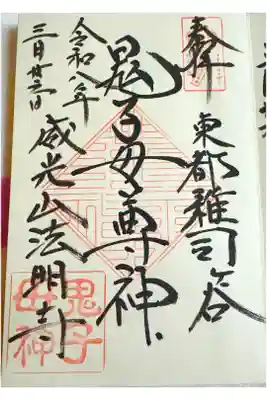 奉拝
東都雑司ヶ谷
鬼子母尊神
威光山法明寺
令和八年
三月廿三日
鬼子
母神